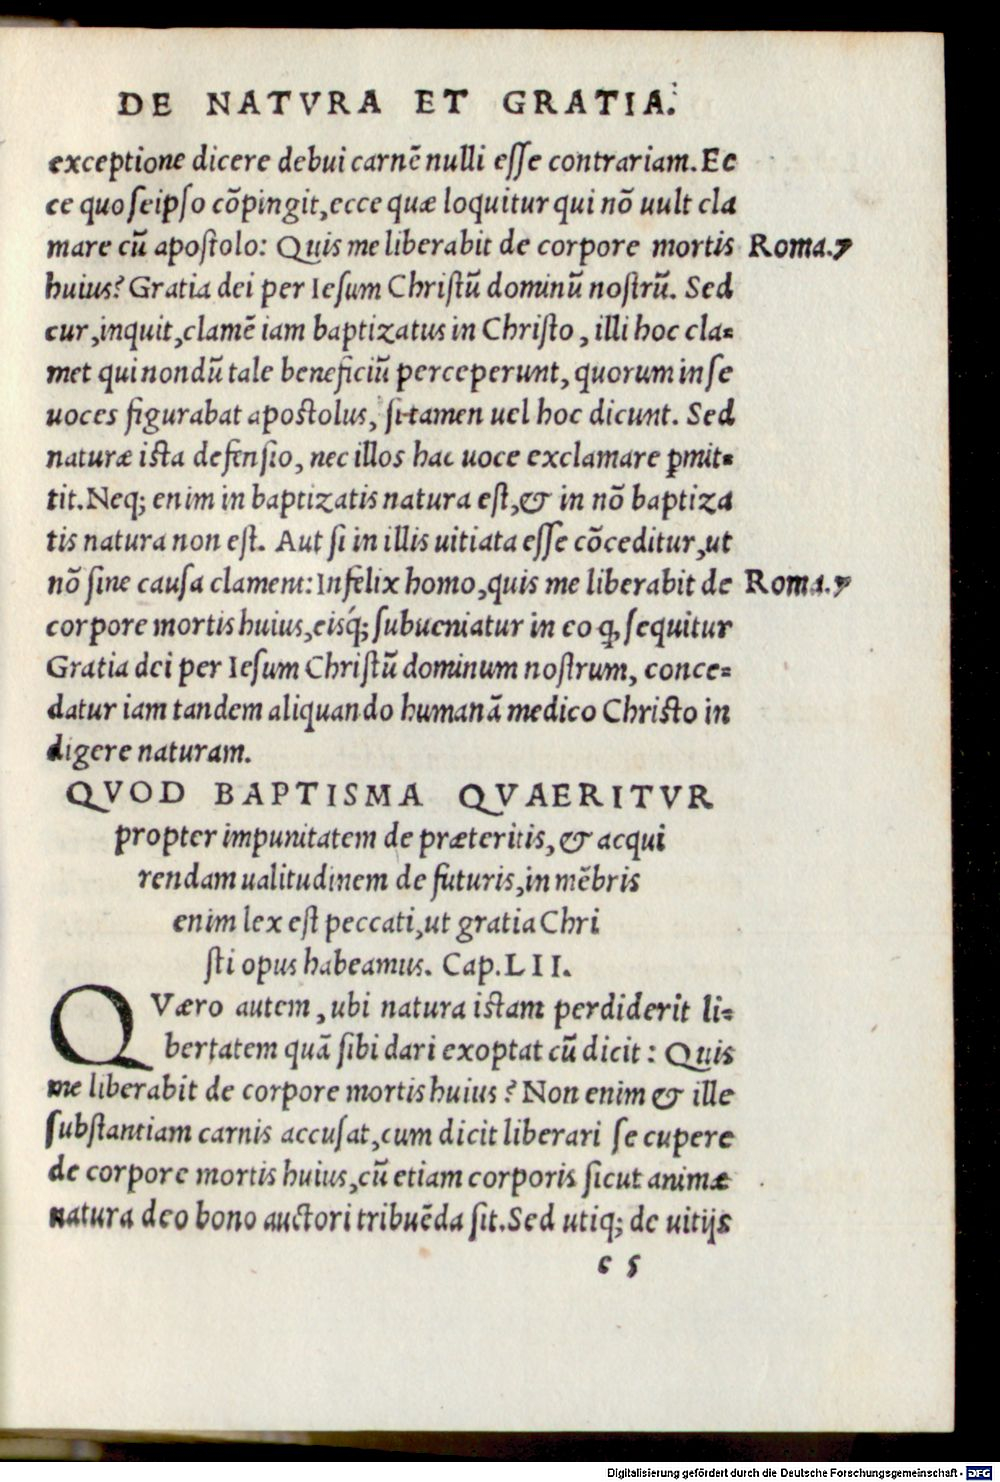 DE NATVRA ET GRATIA.
exceptione dicere debui carnē nulli esse contrariam. Ec
ce quo seipso cōpingit, ecce quæ loquitur qui nō uult cla
mare cū apostolo: Quis me liberabit de corpore mortis Roma. 7
huius? Gratia dei per Iesum Christū dominū nostrū. Sed
cur, inquit, clamē iam baptizatus in Christo, illi hoc cla=
met qui nondū tale beneficiū perceperunt, quorum in se
uoces figurabat apostolus, si tamen uel hoc dicunt. Sed
naturæ ista defensio, nec illos hac uoce exclamare ꝑmit=
tit. Neq; enim in baptizatis natura est, & in nō baptiza
tis natura non est. Aut si in illis uitiata esse cōceditur, ut
nō sine causa clament: Infelix homo, quis me liberabit de Roma. 7
corpore mortis huius, eisq́; subueniatur in eo ꝙ sequitur
Gratia dei per Iesum Christū dominum nostrum, conce=
datur iam tandem aliquando humanā medico Christo in
digere naturam.
QVOD BAPTISMA QVAERITVR
propter impunitatem de præteritis, & acqui
rendam ualitudinem de futuris, in mēbris
enim lex est peccati, ut gratia Chri
sti opus habeamus. Cap. LII.
QVæro autem, ubi natura istam perdiderit li=
bertatem quā sibi dari exoptat cū dicit: Quis
me liberabit de corpore mortis huius? Non enim & ille
substantiam carnis accusat, cum dicit liberari se cupere
de corpore mortis huius, cū etiam corporis sicut animæ
natura deo bono auctori tribuēda sit. Sed utiq; de uitijs
c 5
Digitalisierung gefördert durch die Deutsche Forschungsgemeinschaft - DFG